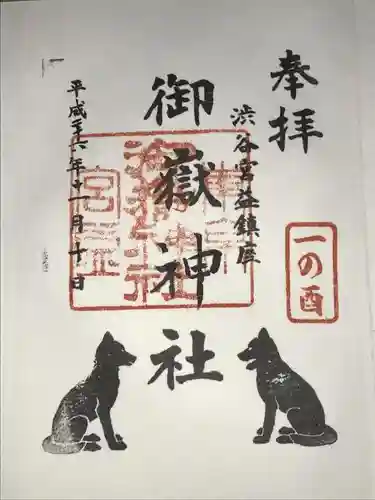 奉拝
渋谷宮益鎮座
御嶽神社
平成二十六年十一月十日
一の酉